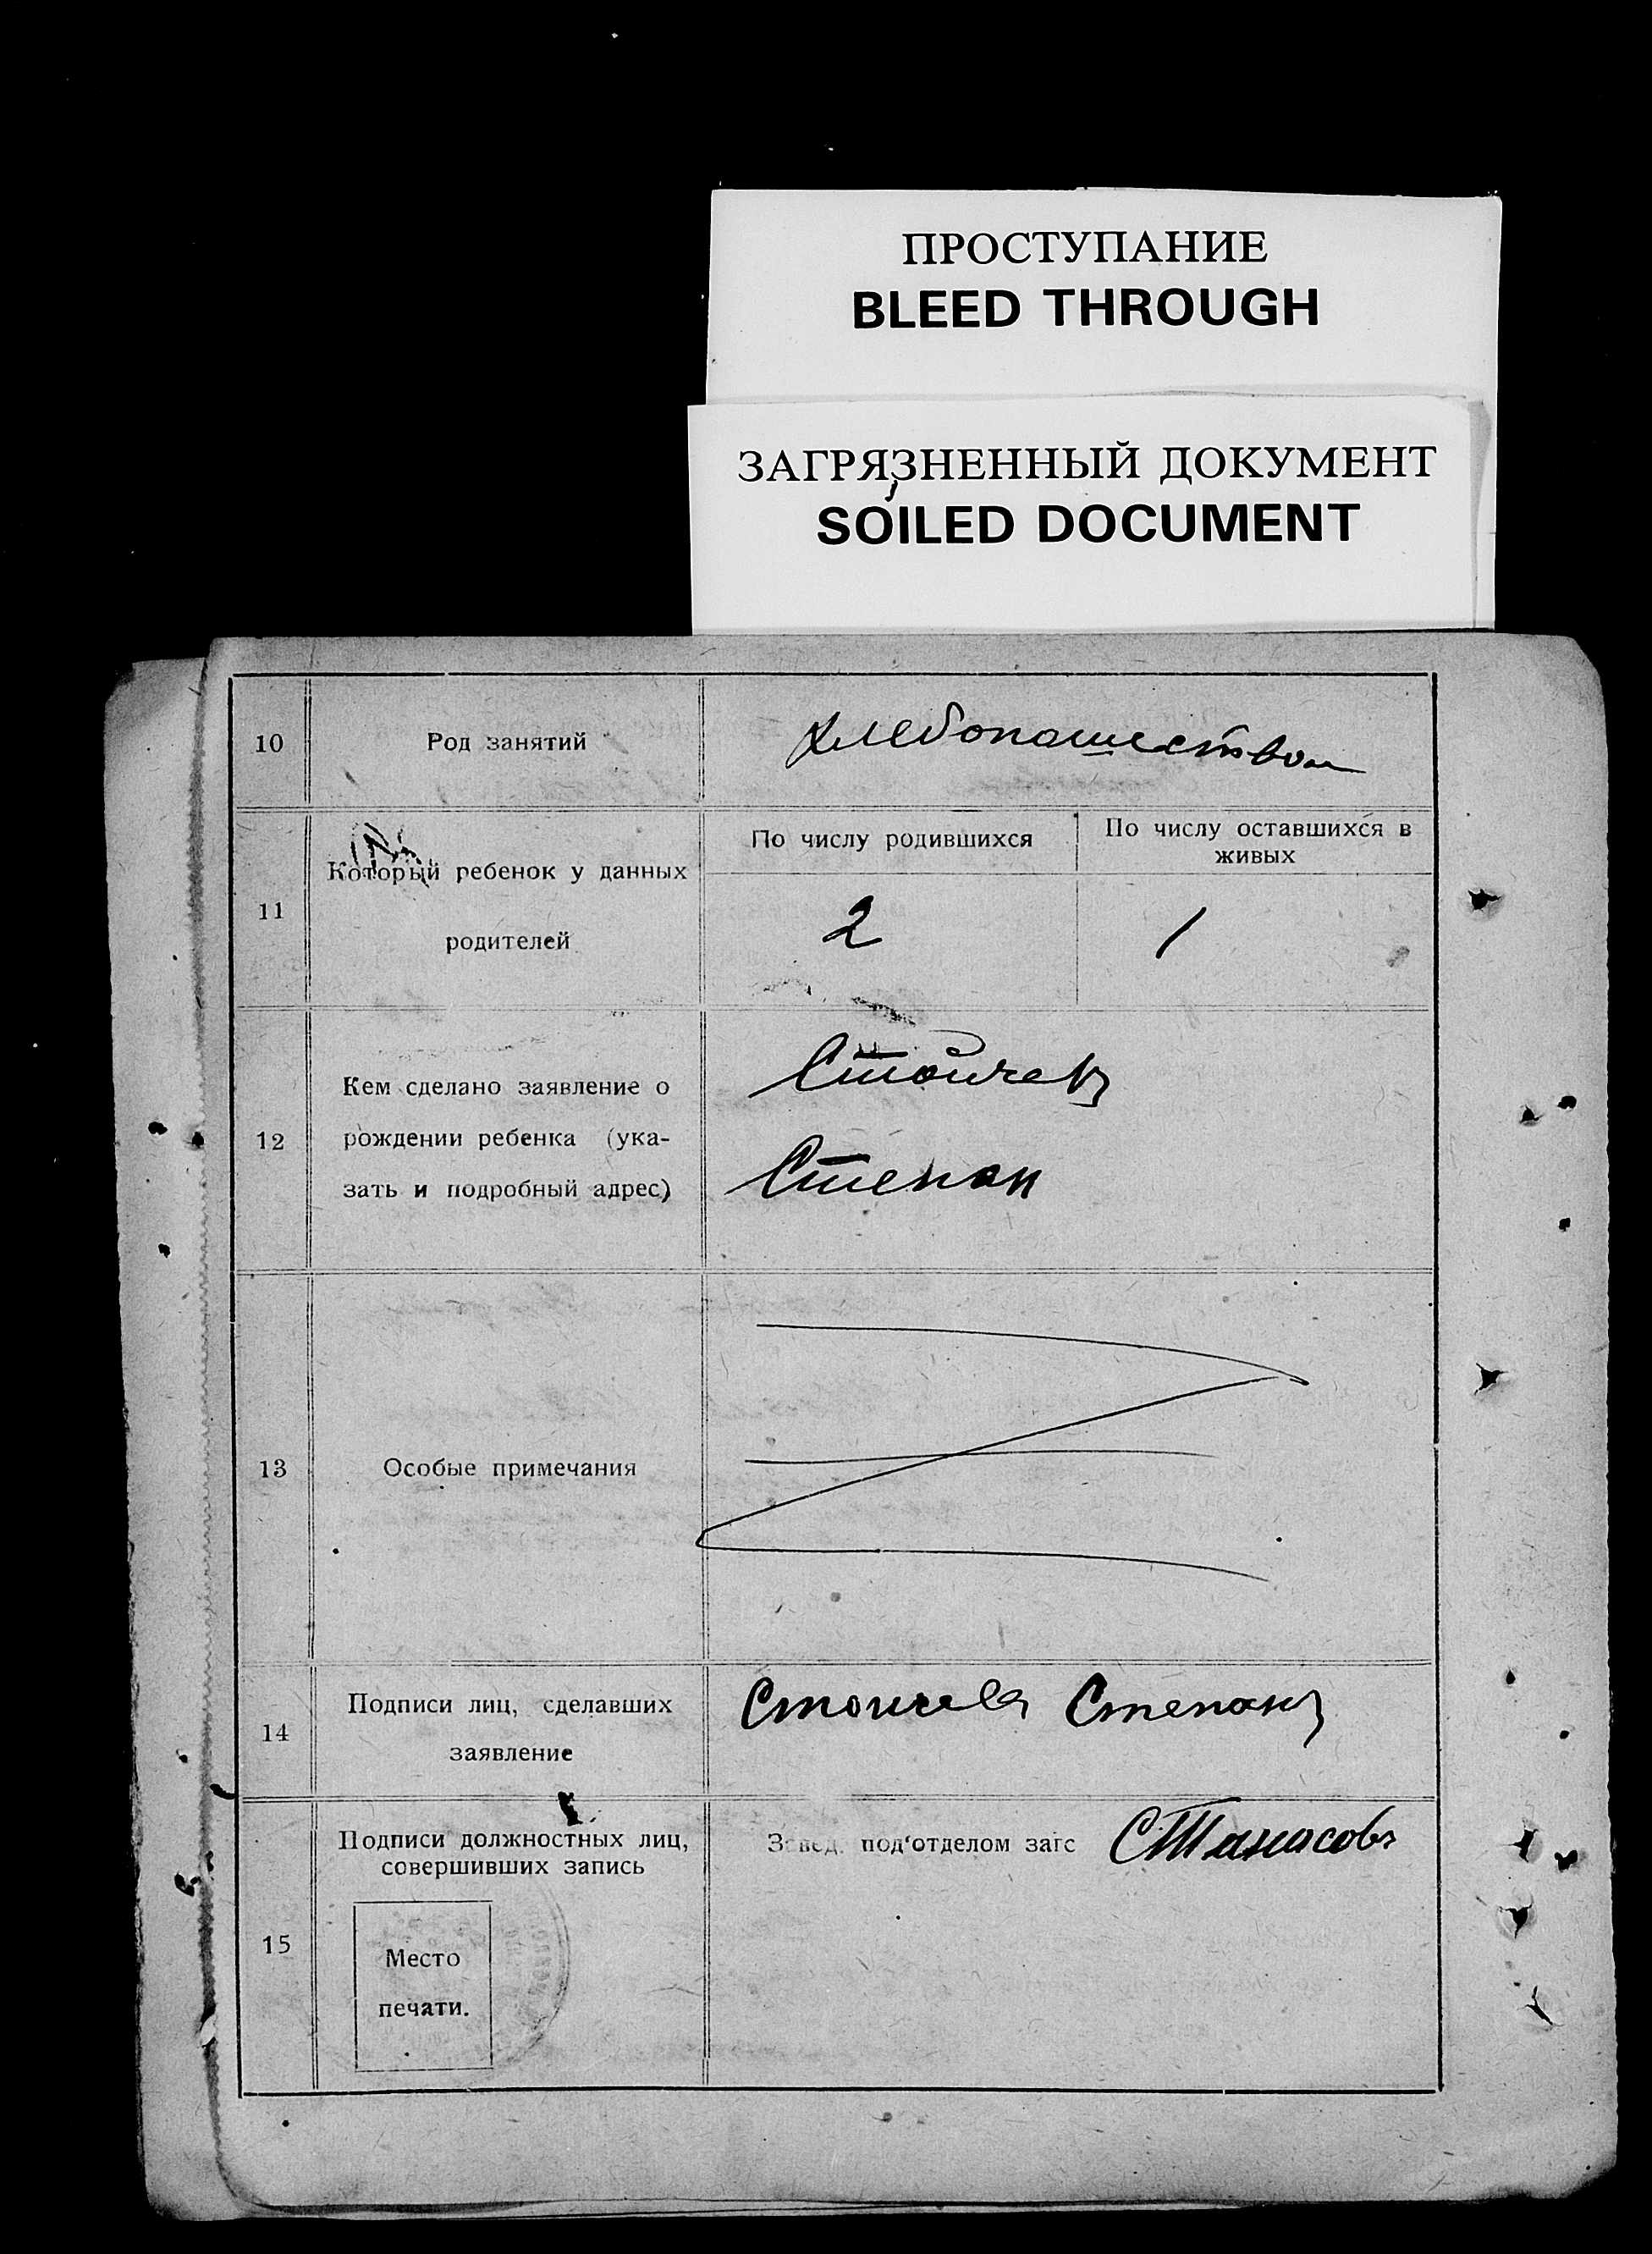 ПРОСТУПАНИЕ
BLEED THROUGH
ЗАГРЯЗНЕННЫЙ ДОКУМЕНТ
SOILED DOCUMENT
10 Род занятий Хлебопашеством
11 Который ребенок у данных родителей
По числу родившихся
По числу оставшихся в
живых
2 1
12 Кем сделано заявление о
рождении ребенка (ука-
зать и подробный адрес)
Стойчевъ
Степан
13 Особые примечания
14 Подписи лиц, сделавших
заявление
Стоичевъ Степанъ
15 Подписи должностных лиц,
совершивших запись
Завед. под'отделом загс СТанасовъ
Место
печати.